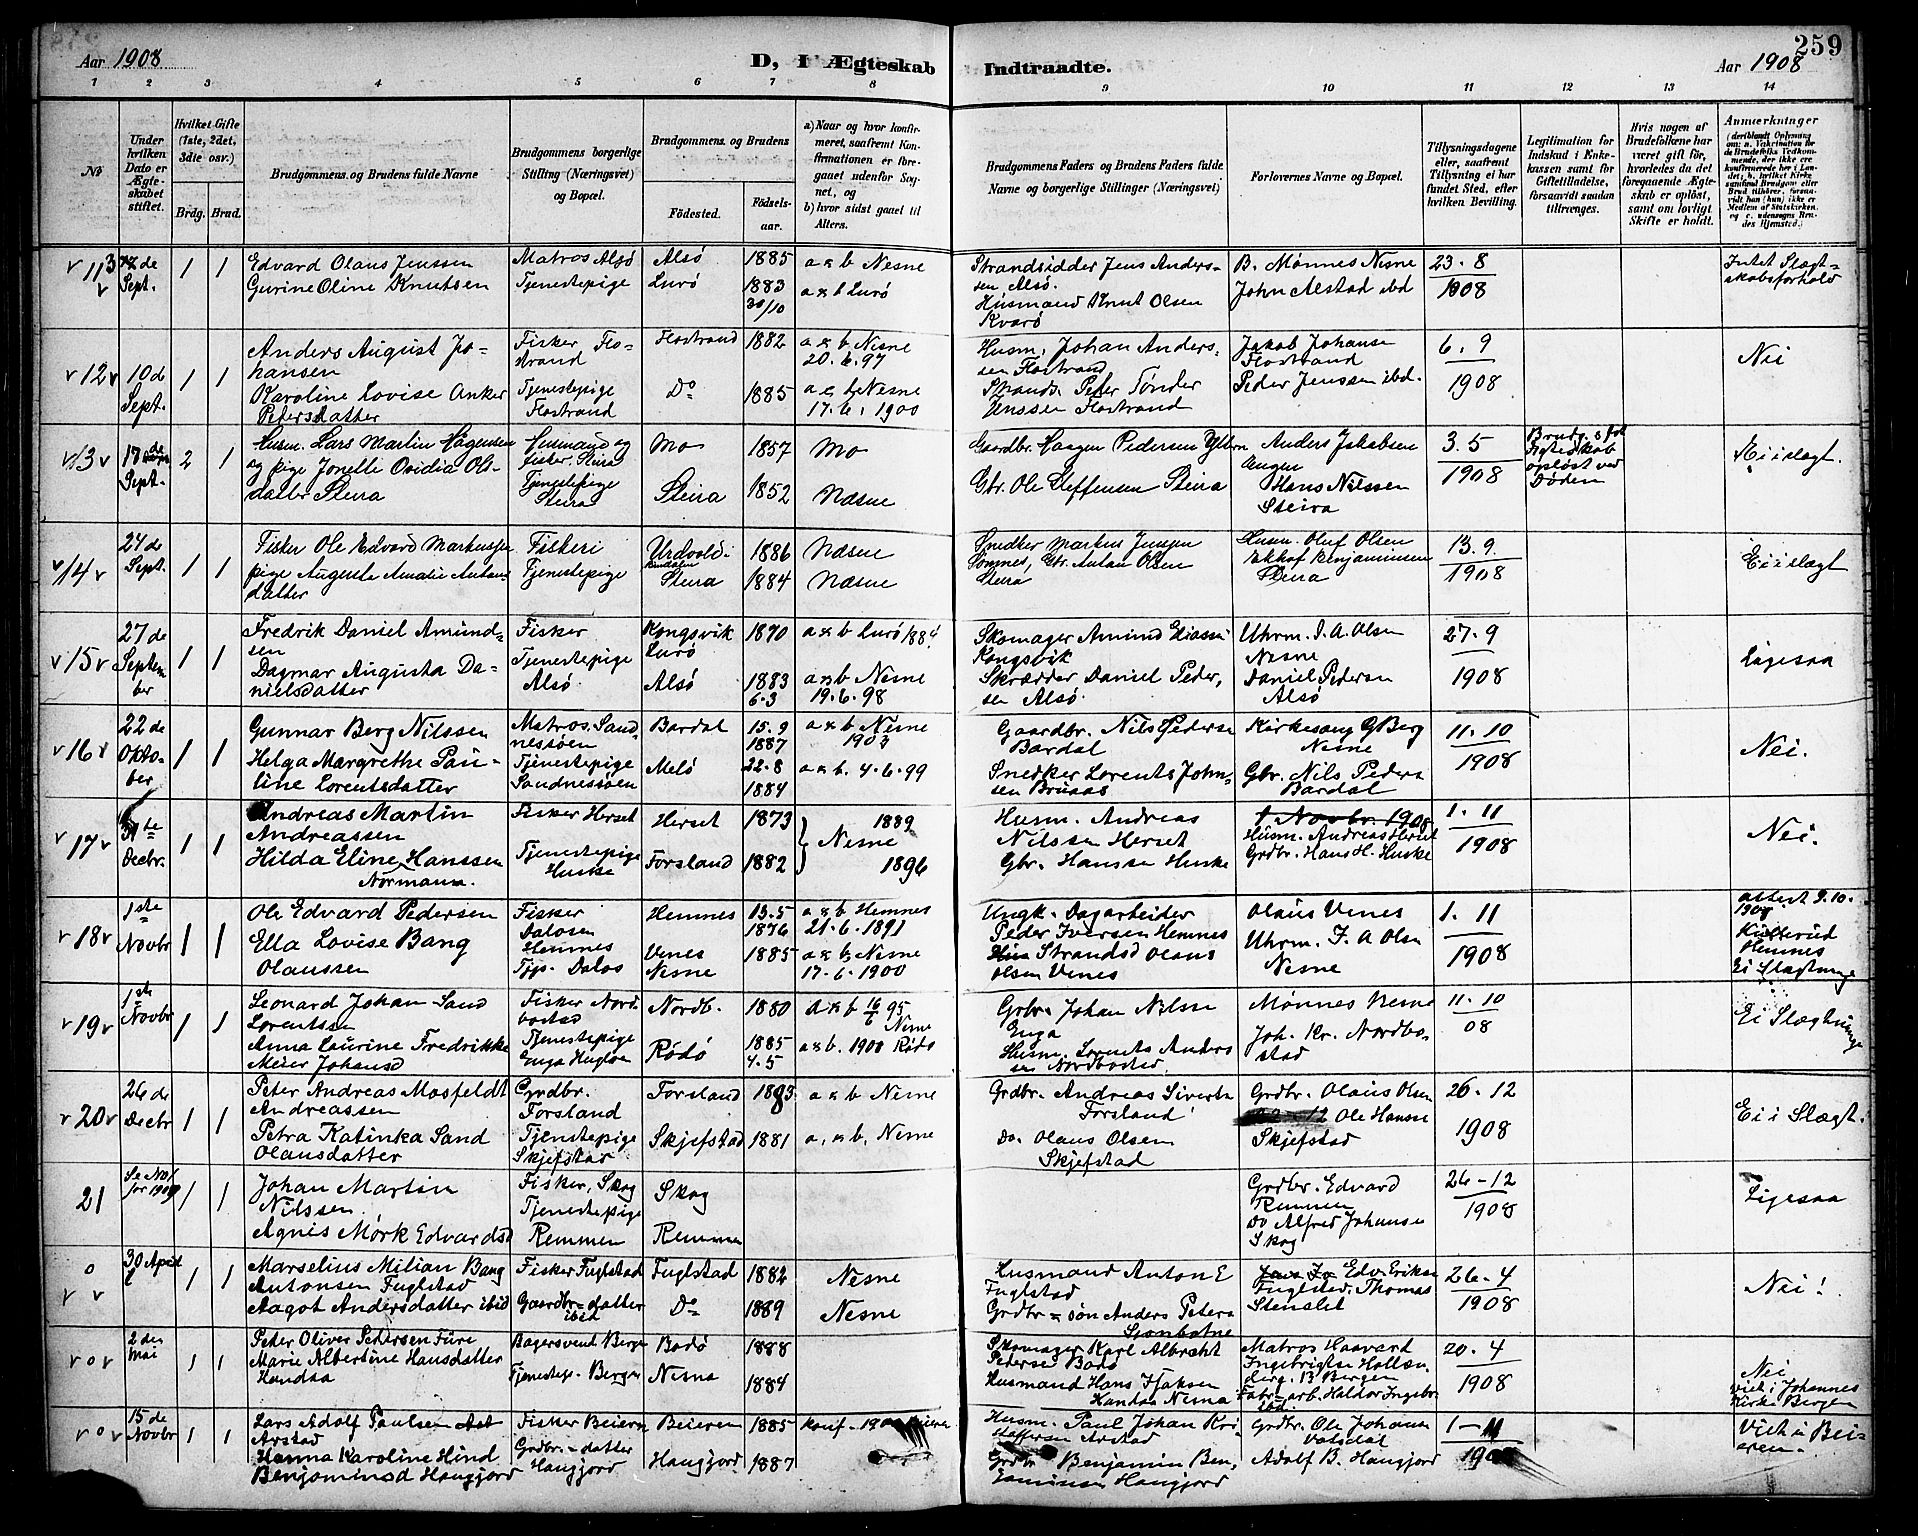 259
Aar 1908
D, I Ægteskab
Indtraadte.
Aar 1908
1 2 3 4 5 6 7 8 9 10 11 12 13 14
No
Under hvilken Dato er Ægteskabet stiftet.
Hvilket Gifte (1ste, 2det, 3die osv.)
Brdg. Brud.
Brudgommens og Brudens fulde Navne
Brudgommens borgerlige Stilling (Næringsvei) og Bopæl.
Brudgommens og Brudens
Fødested.
Fødselsaar.
a) Naar og hvor konfirmeret, saafremt Konfirmationen er foregaaet udenfor Sognet, og
b) hvor sidst gaaet til Alters.
Brudgommens Faders og Brudens Faders fulde Navne og borgerlige Stillinger (Næringsvei)
Forlovernes Navne og Bopæl.
Tillysningsdagene eller, saafremt Tillysning ei har fundet Sted, efter hvilken Bevilling.
Legitimation for Indskud i Enkekassen samt for Giftetilladelse, forsaavidt saadan tiltrænges.
Hvis nogen af Brudefolkene har været gift før, hvorledes da det foregaaende Ægteskab er opløst, samt om lovligt Skifte er holdt.
Anmerkninger
11 Sept. 1 1
Edvard Olaus Jenssen
Gurine Oline Knutsen
Matros Alsö
Tjenestepige
Alsö
Lurö
1885
1883
30/10
a & b Nesne
a & b Lurö
Strandsidder Jens Anderssen Alsö.
Husmand Knut Olsen
Kvarö
B. Mønnes Nesne
John Alstad ibd
23. 8
1908
Intet Slægtskabsforhold
12 10 de Sept. 1 1
Anders August Johansen
Karoline Lovise Anker
Petersdatter
Fisker Flostrand
Tjenestepige
Flostrand
Flostrand
Do
1882
1885
a & b Nesne
20. 6. 97
a & b Nesne
17. 6. 1900
Husm. Johan Anderssen Flostrand
Strands. Peter Tønder
Jenssen Flostrand
Jakob Johanse
Flostrand
Peder Jenssen ibd.
6. 9
1908
Nei
13 17 Sept. 2 1
Husm. Lars Martin Hågensen
og pige Jonelle Ovidia Olsdatter Steira
Husmand og
fisker. Steira
Tjenestepige
Steira
Mo
Steira
1857
1852
Mo
Næsne
Gaardbr. Haagen Pedersen
Gbr. Ole Steffensen Steira
Anders Jakobsen
Hans Nilssen
Steira
3. 5
1908
Brudg.s
Egteskab
opløst ved
Døden
Ei i slægt.
14 24 de Sept. 1 1
Fisker Ole Edvard Markussen
pige Augusta Amalie Antonsdatter
Fiskeri
Tjenestepige
Steira
1886
1884
Næsne
Næsne
Snedker Markus Jenssen
Sømnes, Gbr. Anton Olsen
Steira
Husm. Oluf Olsen
Ekhof Benjaminsen
Steira
13. 9
1908
Ei i slægt
15 27 de September 1 1
Fredrik Daniel Amundsen
Dagmar Augusta Danielsdatter
Fisker
Tjenestepige
Alsö
Kongsvik
Lurö
Alsö
1870
1883
6.3
a & b Lurö 1884
a & b Nesne
19. 6. 98
Skomager Amund Eliassen
Kongsvik
Skrædder Daniel Pedersen Alsö.
Uhrm. J. A. Olsen
Nesne
Daniel Pedersen
Alsö
27. 9
1908
Ligesaa
16 22 de Oktober 1 1
Gunnar Berg Nilssen
Helga Margrethe Pauline Lorentsdatter
Matros. Sandnessøen
Tjenestepige
Sandnessøen
Bardal
Melö
15. 9
1887
22. 8
1884
a & b Nesne
1903
a & b. 4. 6. 99
Gaardbr. Nils Pedersen
Bardal
Snedker Lorents Johnsen Bruaas
Kirkesang. G Berg
Nesne
Gbr. Nils Peders
Bardal
11. 10
1908
Nei.
17 31te Decbr. 1 1
Andreas Martin
Andreassen
Hilda Eline Hanssen
Normann.
Fisker Herset
Tjenestepige
Huske
Herset
Forsland
1873
1882
1889
Nesne
1896
Husm. Andreas
Nilssen Herset
Gbr. Hansse Huske
1 Novbr. 1908
Husm. Andreas Herset
Grdbr. Hans H. Huske
1. 11
1908
Nei.
18 1ste Novbr 1 1
Ole Edvard Pedersen
Ella Lovise Bang
Olaussen
Fisker
Dalosen
Hemnes
Tjp. Dalos
Hemnes
Venes
Nesne
15. 5
1876
1885
a & b Hemnes
21. 6. 1891
a & b Nesne
17. 6. 1900
Ungk. Dagarbeider
Peder Iversen Hemnes
Strandsd Olaus
Olsen Venes
Olaus Venes
Uhrm. J. A Olsen
Nesne
1. 11
1908
attest 9. 10. 1908
Hemnes
Ei Slægtninge
19 1ste Novbr 1 1
Leonard Johan Sand
Lorentssen
Anna Laurine Fredrikke
Meier Johansd
Fisker Nordbostad
Tjenestepige
Enga Hugløen
Nordb.
Rödö
1880
1885
4. 5
a & b 16/6 95
Nesne
a & b. 1900 Rödö
Grbr. Johan Nilsse
Enga
Husm. Lorents Andersen Nordbostad.
Mønnes Nesne
Joh. Kr. Nordbostad
11. 10
08
Ei Slægtninge
20 26 de Decbr 1 1
Peter Andreas Mosfeldt
Andreassen
Petra Katinka Sand
Olausdatter
Grdbr.
Forsland
Tjenestepige
Skjefstad
Forsland
Skjefstad
1883
1881
a & b Nesne
a. & b. Nesne
Grdbr. Andreas Sivertsen
Forsland
Do. Olaus Olsen
Skjefstad
Grdbr. Olaus Olsen
Ole Hansse
Skjefstad
26. 12
1908
Ei i Slægt.
21 Se No 1 for 1909 1 1
Johan Martin
Nilssen
Agnis Mörk Edvardsd
Fisker, Skog
Tjenestepige
Remmen
Skog
Remmen
Grdbr. Edvard
Remmen
Do Alfred Johanse
Skog
26-12
1908
Ligesaa
0 30 April 1 1
Marselius Milian Bang
Antonsen Fuglstad
Aagot Andersdatter ibid
Fisker Fuglstad
Gaardbr-datter
ibid
Fuglstad
Do
1882
1889
Nesne
Nesne
Husmand Anton E
Fuglstad
Grdbr-søn Anders Peters
Sjonbotne
Edv. Eriksen
Fuglstad. Thomas
Stenslet
26. 4
1908
Nei!
0 2 den Mai 1 1
Peder Oliver Pedersen Füre
Marie Albertine Hansdatter
Handaa
Bagersvend Bergen
Tjenestep. Bergen
Bodö
Nesna
1888
1884
Skomager Karl Albrecht
Pedersen Bodö
Husmand Hans Isaksen
Handaa Nesna
Matros Haavard
Ingebrigtsen
Bergen
Fabr-arb. Haldor Ingebr.
ibd.
20. 4
1908
Nei
Viet i Johannes
Kirke Bergen
0 15 de Novbr 1 1
Lars Adolf Paulsen
Arstad
Hanna Karoline Hind
Benjaminsd Haugjord
Fisker Beiern
Grdbr-datter
Haugjord
Beieren
Haugjord
1885
1887
konf. 1900 Beiern
Husm. Paul Johan Kristoffersen Arstad
Grdbr Benjamin Benjaminsen Haugjord
Grdbr. Ole Johanse
Valsdal
Adolf B. Haugjord
1-11
1908
Viet i Beieren.